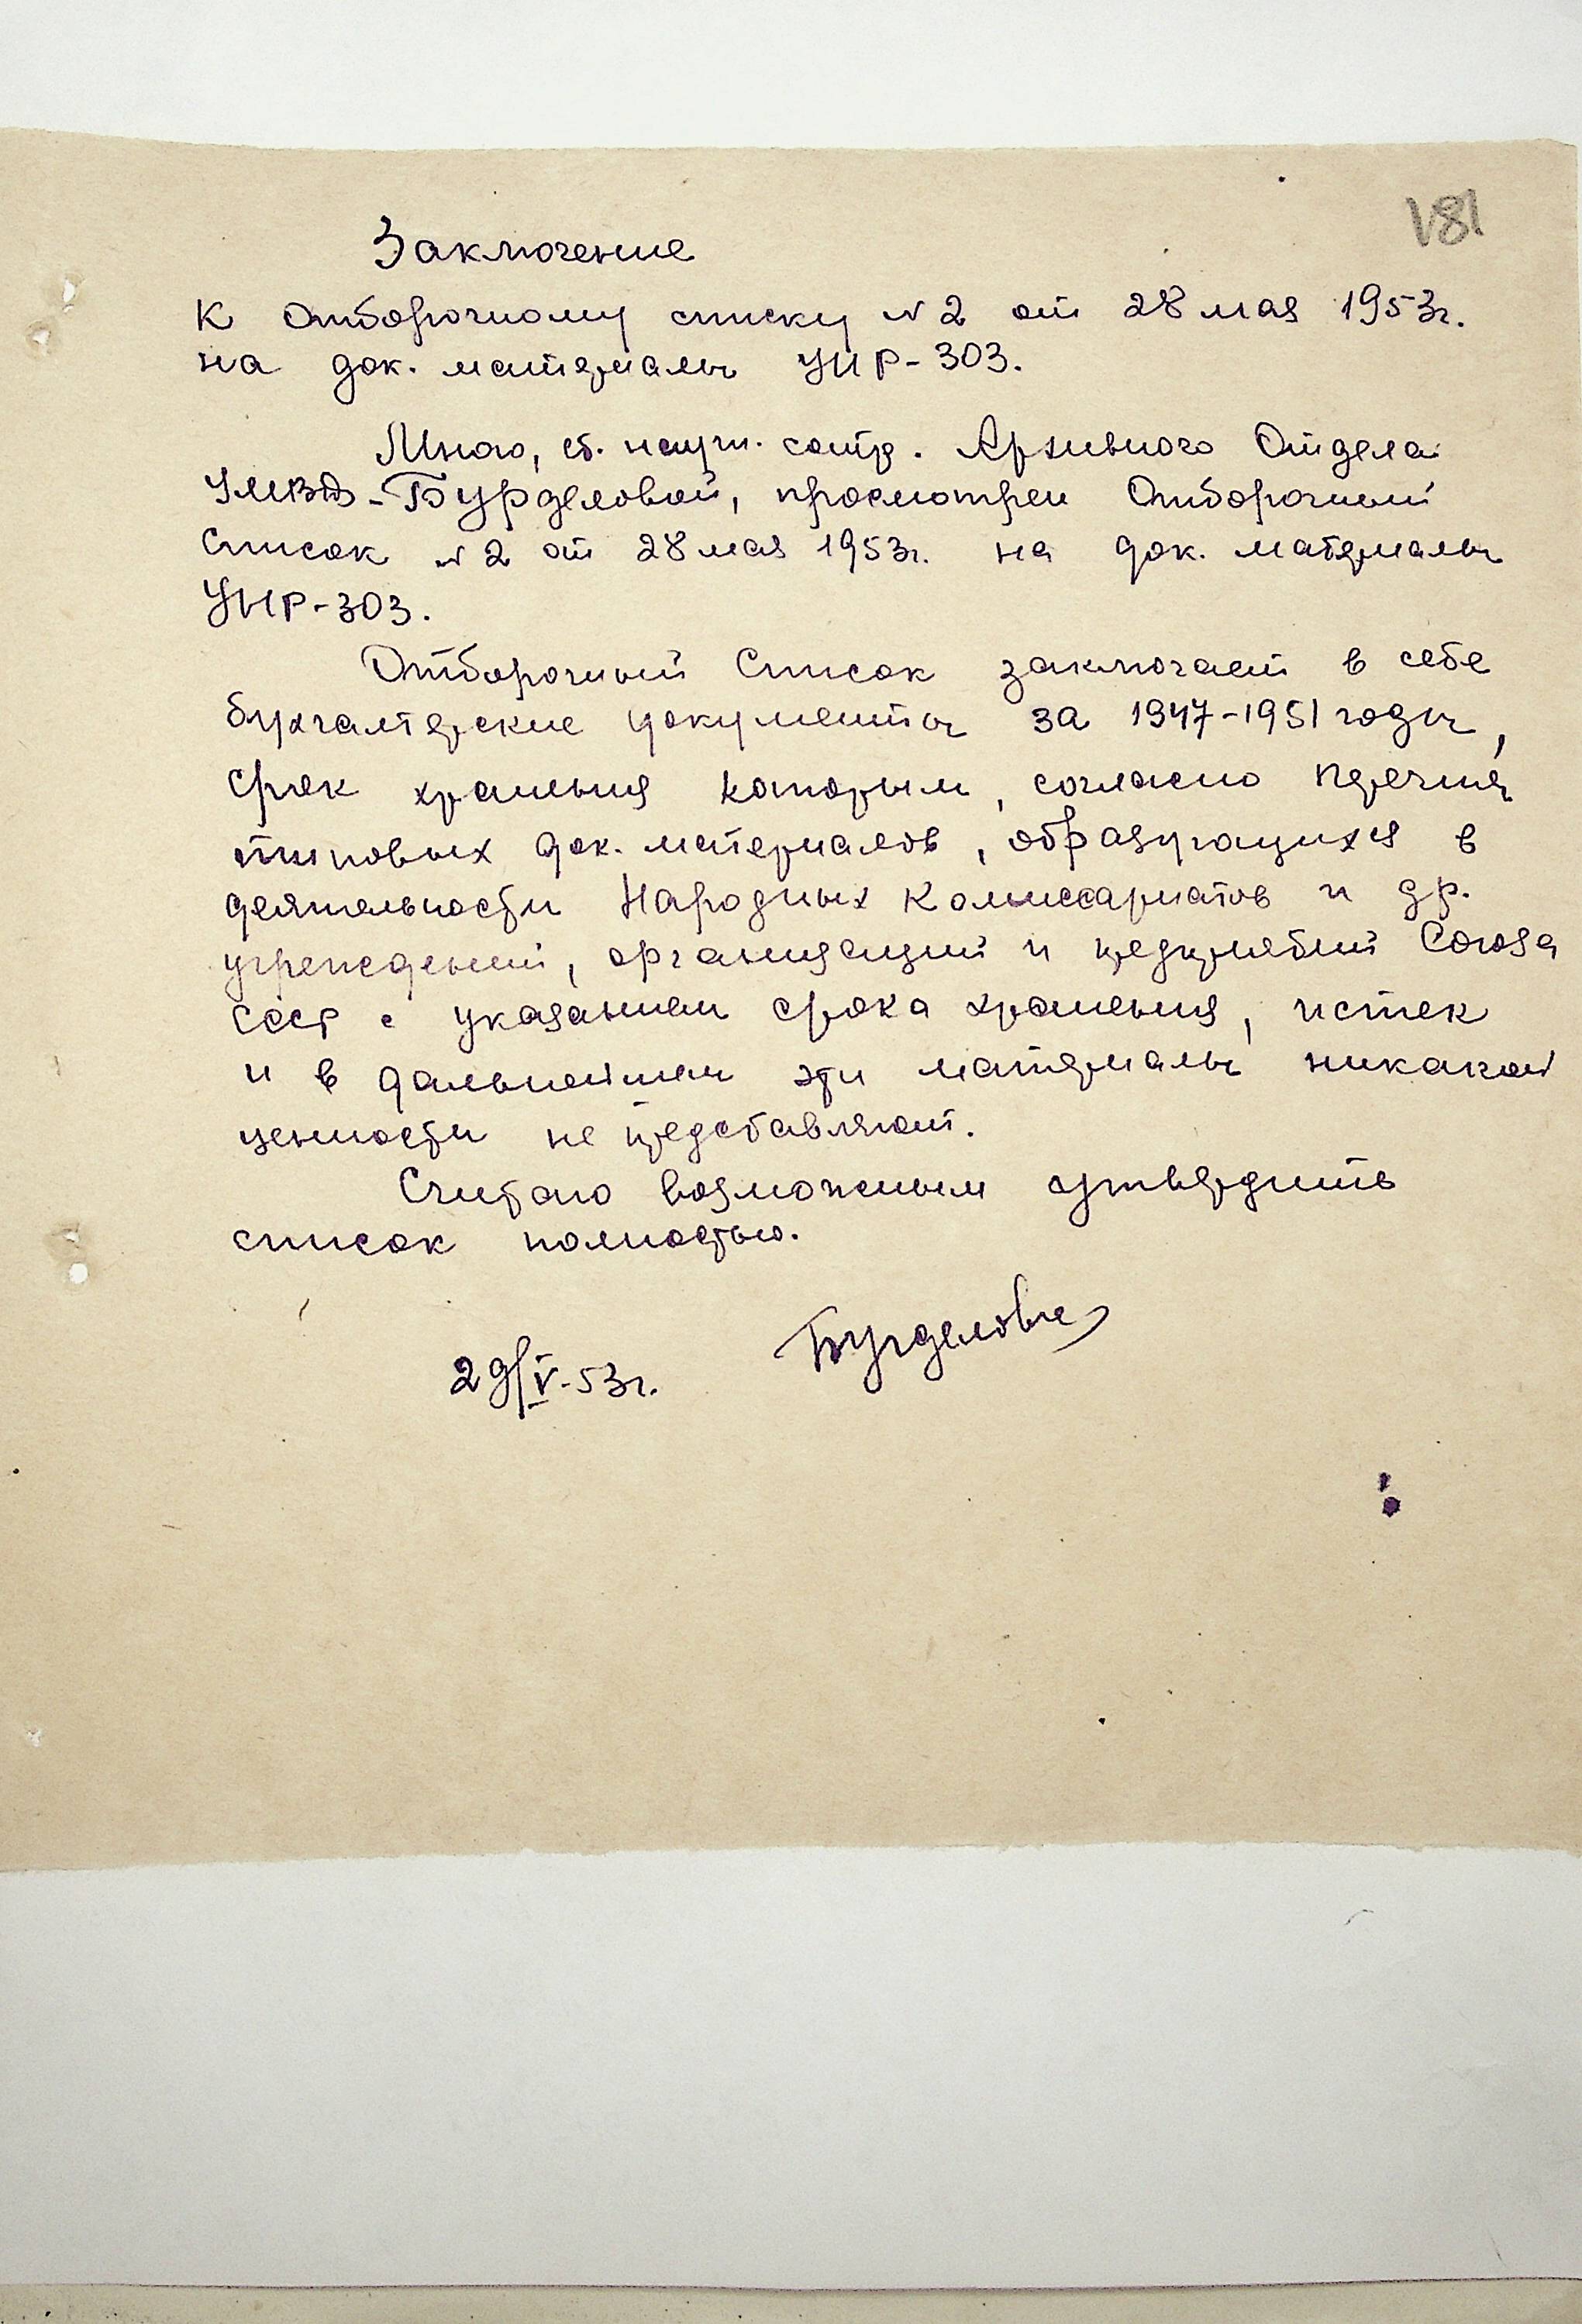 181
Заключение
к Отборочному списку №2 от 28 мая 1953г.
на док. материалы УНР-303.
Мною, ст. научн. сотр. Архивного Отдела
УМВД-Бурделовой, просмотрен Отборочный
Список №2 от 28 мая 1953г. на док. материалы
УНР-303.
Отборочный Список заключает в себе
бухгалтерские документы за 1947-1951 годы,
срок хранения которым, согласно перечня
типовых док. материалов, образующихся в
деятельности Народных Комиссариатов и др.
учреждений, организаций и предприятий Союза
ССР с указанием срока хранения, истек
и в дальнейшем эти материалы никакой
ценности не представляют.
Считаю возможным утвердить
список полностью.
29/V-53г. Бурделова